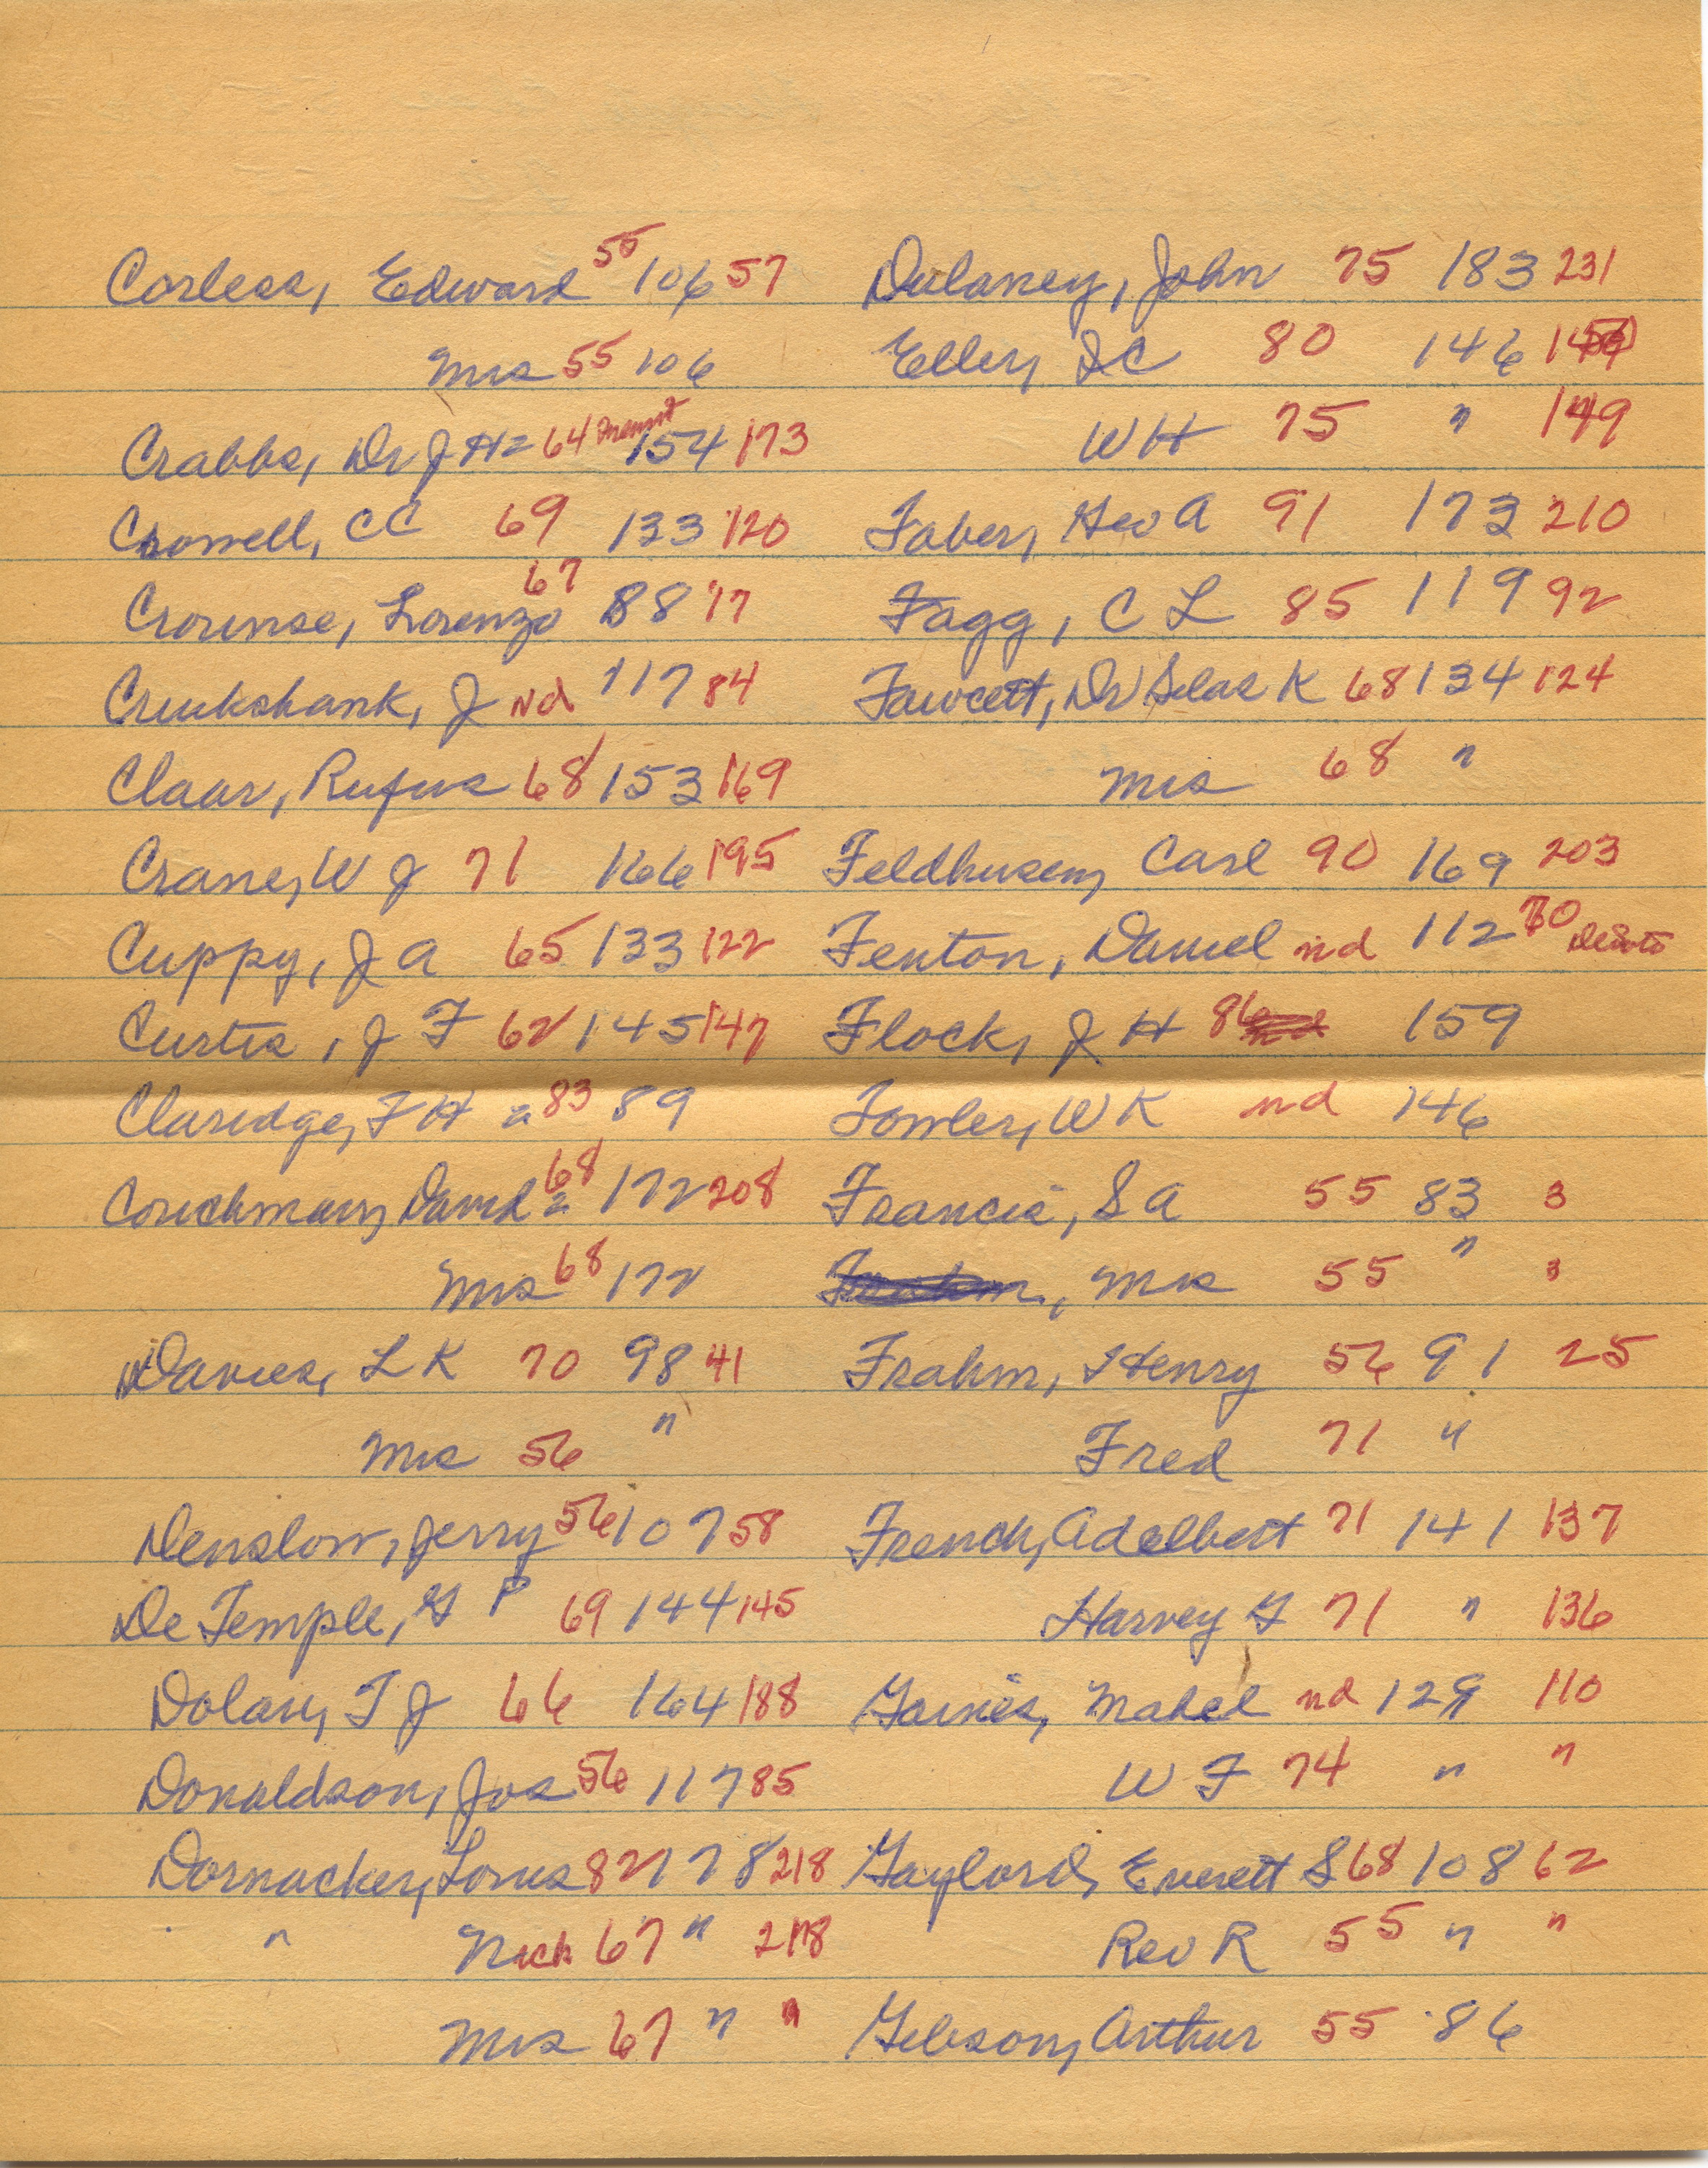 Corless, Edward 55 106 57
Mrs 55 106
Crabbs, Dr J H = 64 154 173
Crowell, CC 69 133 120
Crounse, Lorenzo 67 88 17
Cruikshank, J nd 117 84
Claar, Rufus 68 153 169
Crane, W J 71 166 195
Cuppy, J A 65 133 122
Curtis, J F 62 145 147
Claridge, F H = 83 89
Couchman, David = 68 172 208
Mrs 68 172
Davies, L K 70 98 41
Mrs 56 "
Denslow, Jerry 56 107 58
De Temple, G P 69 144 145
Dolan, T J 66 164 188
Donaldson, Jos 56 117 85
Dornacker, Lorus 82 178 218
" Nick 67 " 218
Mrs 67 " "
Dulaney, John 75 183 231
Eller, I C 80 146
W H 75 " 149
Faber, Geo A 91 173 210
Fagg, C L 85 119 92
Fawcett, Dr Silas K 68 134 124
Mrs 68 "
Feldhusen, Carl 90 169 203
Fenton, Daniel nd 112 DeSoto
Flock, J H 86 159
Fowler, W K nd 146
Francis, S A 55 83 3
Mrs 55 " 3
Frahm, Henry 56 91 25
Fred 71 "
French, Adelbert 71 141 137
Harvey G 71 " 136
Gaines, Mabel nd 129 110
W F 74 " "
Gaylord, Everett S 68 108 62
Rev R 55 " "
Gibson, Arthur 55 86